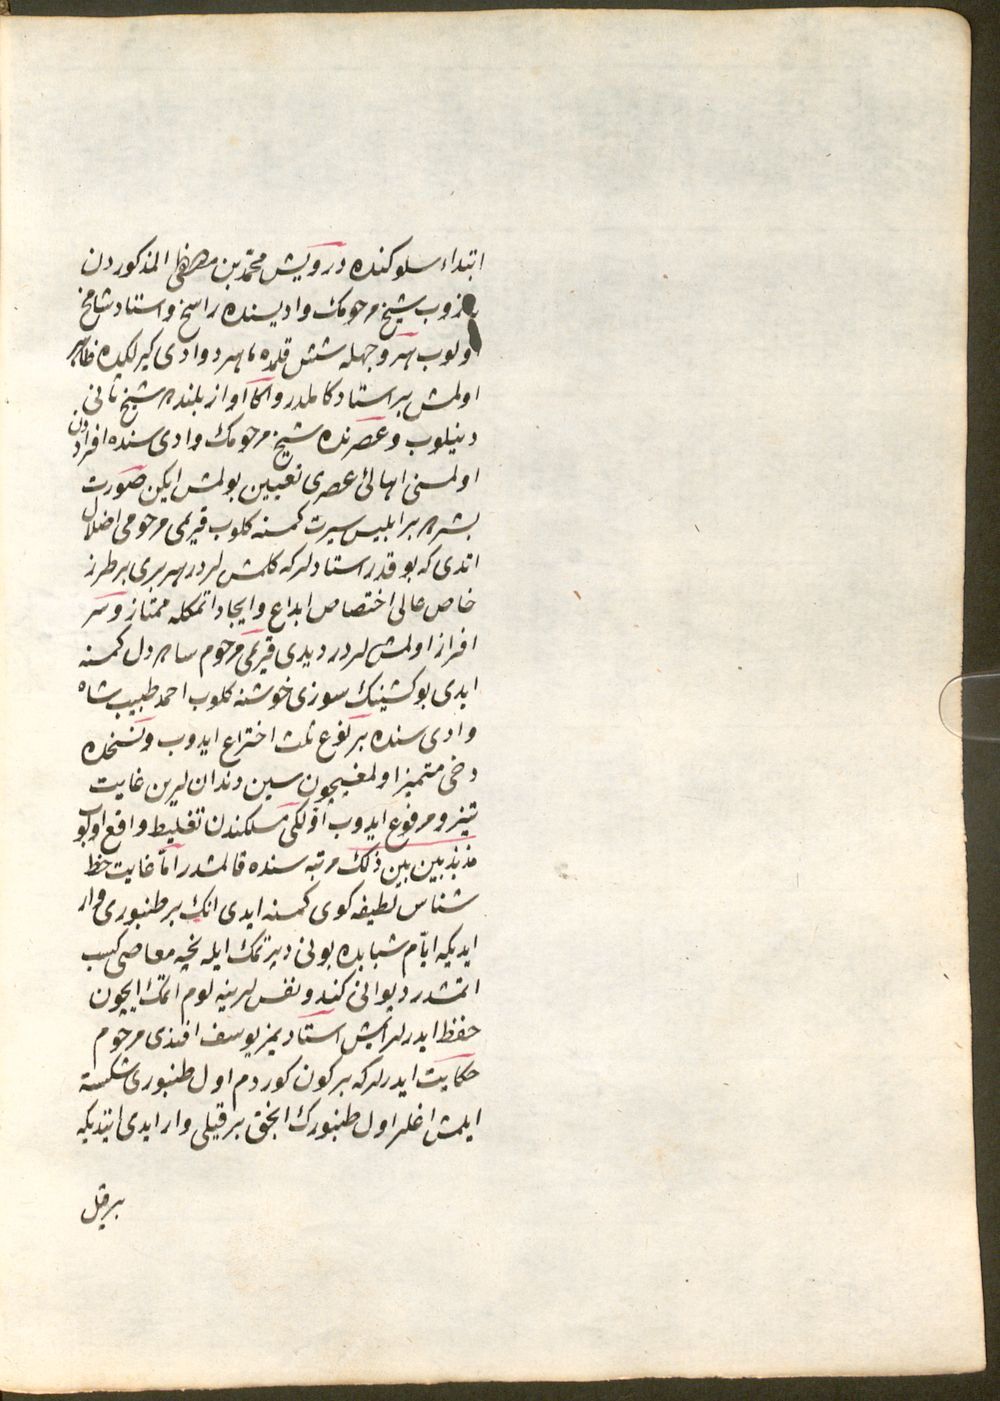 ابتداء سلوكنده درويش محمّد بن مصطفى المذكوردن
يازوب شيخ مرحومك واديسنده راسخ و استاد شامخ
اولوب هر وجهله شش قلمده ماهر و وادى كيرلكده ظاهر
اولمش بر استاد كاملدر و اكا آوازه بلنده شيخ ثانى
دنيلوب و عصرنده شيخ مرحومك وادىسنده افراددن
اولمسنى اهالئ عصرى تعيين بولمش ايكن صورت
بشرده بر ابليس سيرت كمسنه كلوب قيريمى مرحومى اضلال
اتدى كه بو قدر استادلر كه كلمشلردر هر برى بر طرز
خاص عالى اختصاص ابداع و ايجاد اتمكله ممتاز و سر
افراز اولمشلردر ديدى قيريمى مرحوم ساده دل كمسنه
ايدى بو كشينك سوزى خوشنه كلوب احمد طبيب شاه
وادىسنده بر نوع ثلث اختراع ايدوب و نسخده
دخى متميز اولمغيچون سين دندانلرين غايت
تيز و مرفوع ايدوب اوّلكى مسلكندن تغليط واقع اولوب
مذبذبين بين ذلك مرتبه سنده قالمشدر امّا غايت حظ
شناس لطيفه كوى كمسنه ايدى انك بر طنبورى وار
ايديكه ايّام شبابده بونى دپرتمك ايله نچه معاصى كسب
اتمشدر ديو انى كندو نفسلرينه لوم اتمك ايچون
حفظ ايدرلر ايمش استاديمز يوسف افندى مرحوم
حكايت ايدرلر كه بر كون كوردم اول طنبورى شكسته
ايلمش اغلر اول طنبورك انجق بر قيلى وار ايدى ايتديكه
بر قيل